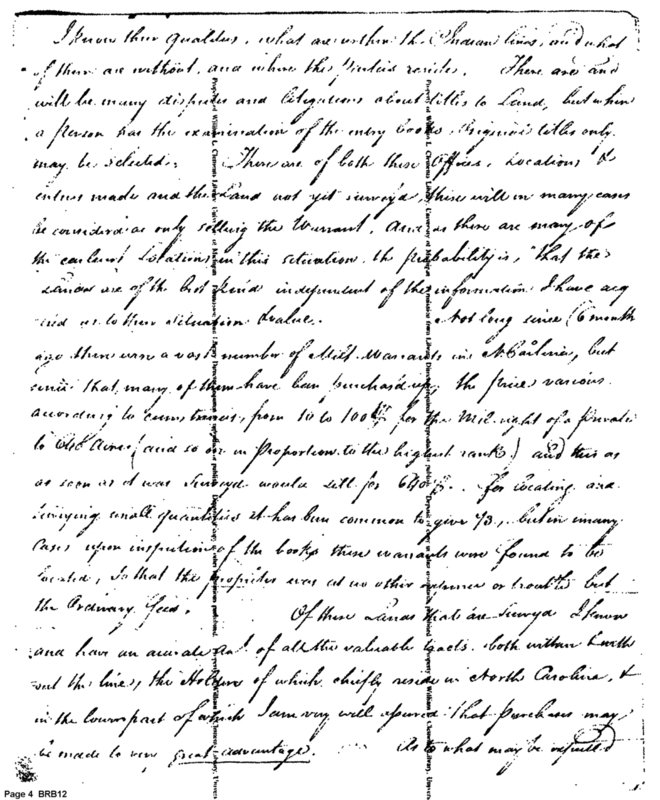 I know their qualities, what are within the Indian lines, and what
of them are without, and where the resides. There are and
will be many disputes and litigations about titles to Land, but when
a person has the examination of the entry books original titles only
may be selected. There are of both these Offices, Locations &
entries made and the Land not yet surveyd, these will in many cases
be considered as only selling the Warrant, and as there are many of
the earliest Locations in this situation, the probability is, that the
Lands are of the best kind independent of the information I have acq
uired as to their situation & value. Not long since (6 month
ago there were a vast number of Milt. Warrants in N Carolina, but
since that, many of them have been purchasd up, the prices various
according to from 10 to 100 for the Mil. right of a private
to 640 Acres (and so on in Proportion to the highest rank) and this as
as soon as it was Surveyd would sell for . For locating and
surveying small quantities it has been common to give 1/3, but in many
Cases upon inspection of the books these warrants were found to be
located, so that the was at no other or trouble but
the Ordinary fees. Of these Lands that are Survyd I know
and have an accurate Act. of all the valuable tracts both within & with
out the line, the Holders of which chiefly reside in North Carolina, &
in the lower part of which I am very well that purchases may
be made to very great advantage. As to what may be
Page 4 BRB12